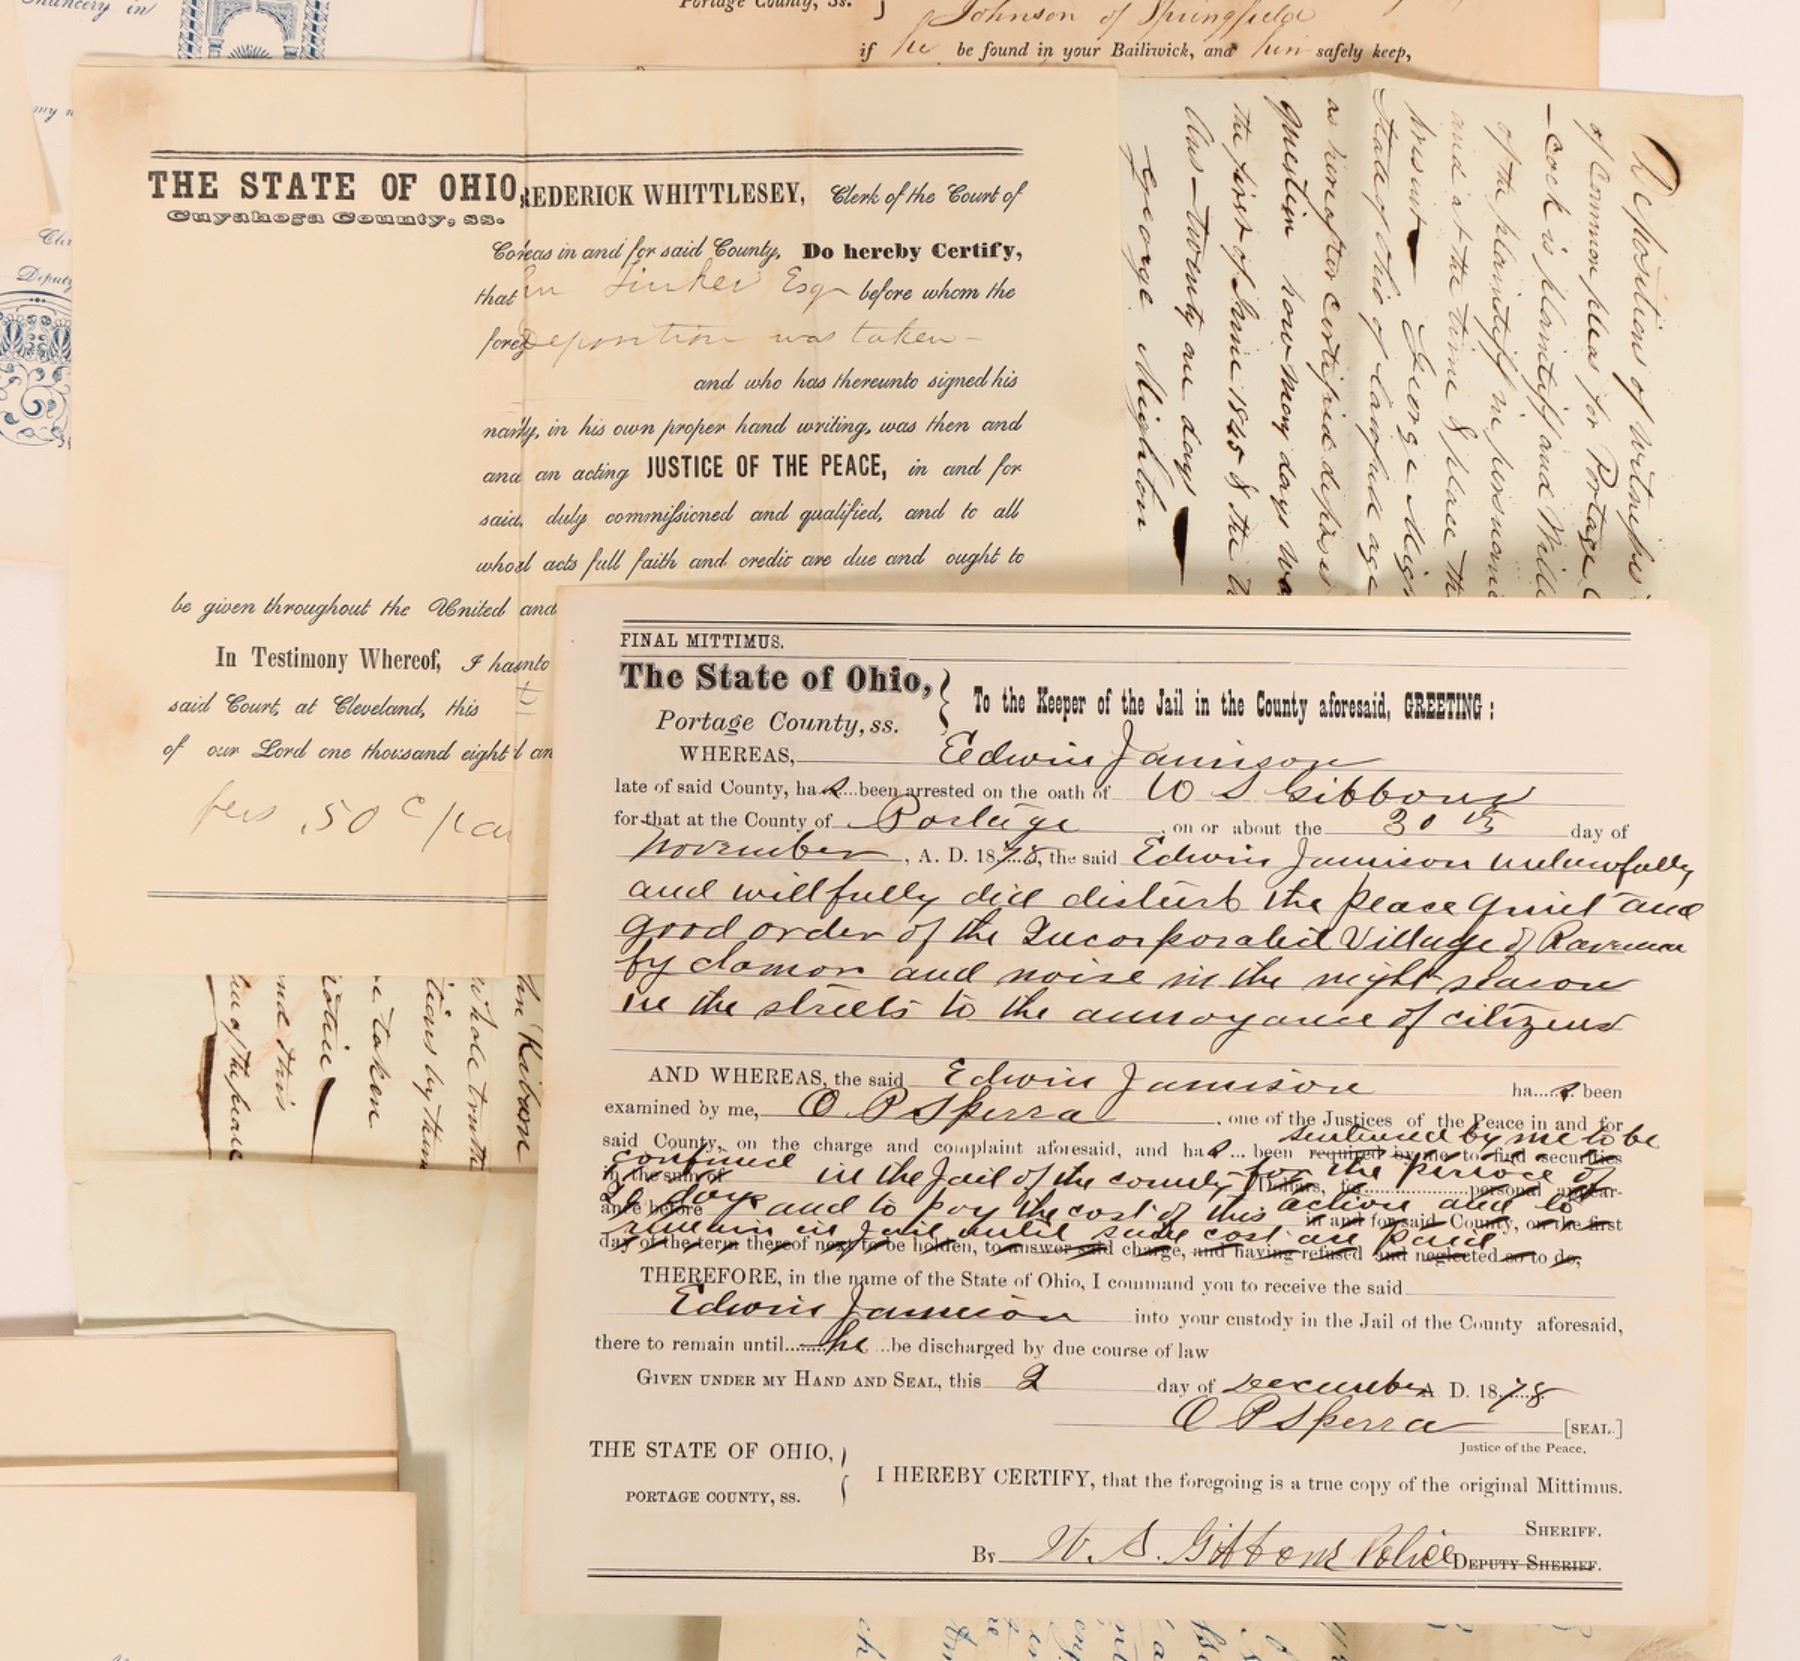 Chancery in
Portage County, Ss.
Johnson of Springfield
if he be found in your Bailiwick, and him safely keep,
my
Deputy
THE STATE OF OHIO,
Cuyahoga County, ss.
REDERICK WHITTLESEY, Clerk of the Court of
Co eas in and for said County, Do hereby Certify,
that Tinker Esq before whom the
foreg Deposition was taken -
and who has thereunto signed his
nam y, in his own proper hand writing, was then and
and an acting JUSTICE OF THE PEACE, in and for
said, duly commissioned and qualified, and to all
whos l acts full faith and credit are due and ought to
be given throughout the United and
In Testimony Whereof, I ha nto
said Court, at Cleveland, this
of our Lord one thousand eight an
fees .50 c
Depositions of witnesses
of Common pleas for Portage C
-cock is plaintiff and Will
of the plaintiff in person
and at the time & place th
present
George Migh
State of Ohio of lawful age
as hereafter certified depos
Question how many days wa
the first of June 1845 & the
Ans - Twenty one days
George Mighton
whole truth
tions by them
e taken
nd this
ce of the peace
FINAL MITTIMUS.
The State of Ohio,
Portage County, ss.
To the Keeper of the Jail in the County aforesaid, GREETING:
WHEREAS, Edwin Jamison
late of said County, ha s been arrested on the oath of W S Gibbons
for that at the County of Portage, on or about the 30 th day of
November, A. D. 1878, the said Edwin Jamison unlawfully
and willfully did disturb the peace quiet and
good order of the Incorporated Village of Ravenna
by clamor and noise in the night season
in the streets to the annoyance of citizens
AND WHEREAS, the said Edwin Jamison ha s been
examined by me, O P Sperra, one of the Justices of the Peace in and for
said County, on the charge and complaint aforesaid, and ha s been required by me to find securities
sentenced by me to be
confined in the Jail of the county for the period of
in the sum of Dollars, for personal appear-
days and to pay the cost of this action and to
ance before in and for said County, on the first
remain in Jail until said cost are paid
day of the term thereof next to be holden, to answer said charge, and having refused and neglected so to do,
THEREFORE, in the name of the State of Ohio, I command you to receive the said
Edwin Jamison into your custody in the Jail of the County aforesaid,
there to remain until he be discharged by due course of law
GIVEN UNDER MY HAND AND SEAL, this 2 day of December A D. 1878
O P Sperra [SEAL.]
Justice of the Peace.
THE STATE OF OHIO,
PORTAGE COUNTY, SS.
I HEREBY CERTIFY, that the foregoing is a true copy of the original Mittimus.
SHERIFF.
By W. S. Gibbons Police DEPUTY SHERIFF.